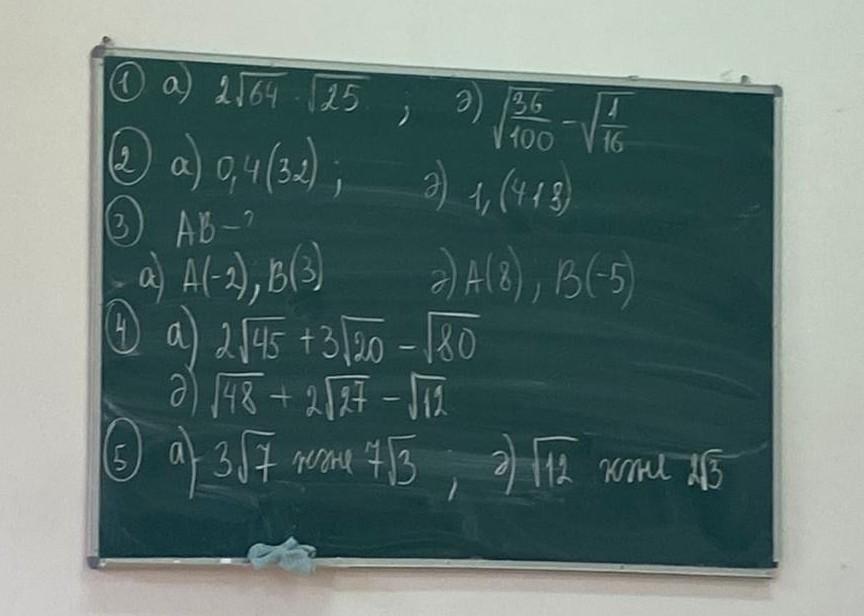 ① а) 2√64 · √25 ; ә) √(36/100) − √(1/16)
② а) 0,4(32) ; ә) 1,(413)
③ AB − ?
а) A(-2), B(3) ә) A(8), B(-5)
④ а) 2√45 + 3√20 − √80
ә) √48 + 2√27 − √12
⑤ а) 3√7 және 7√3 ; ә) √12 және 2√3